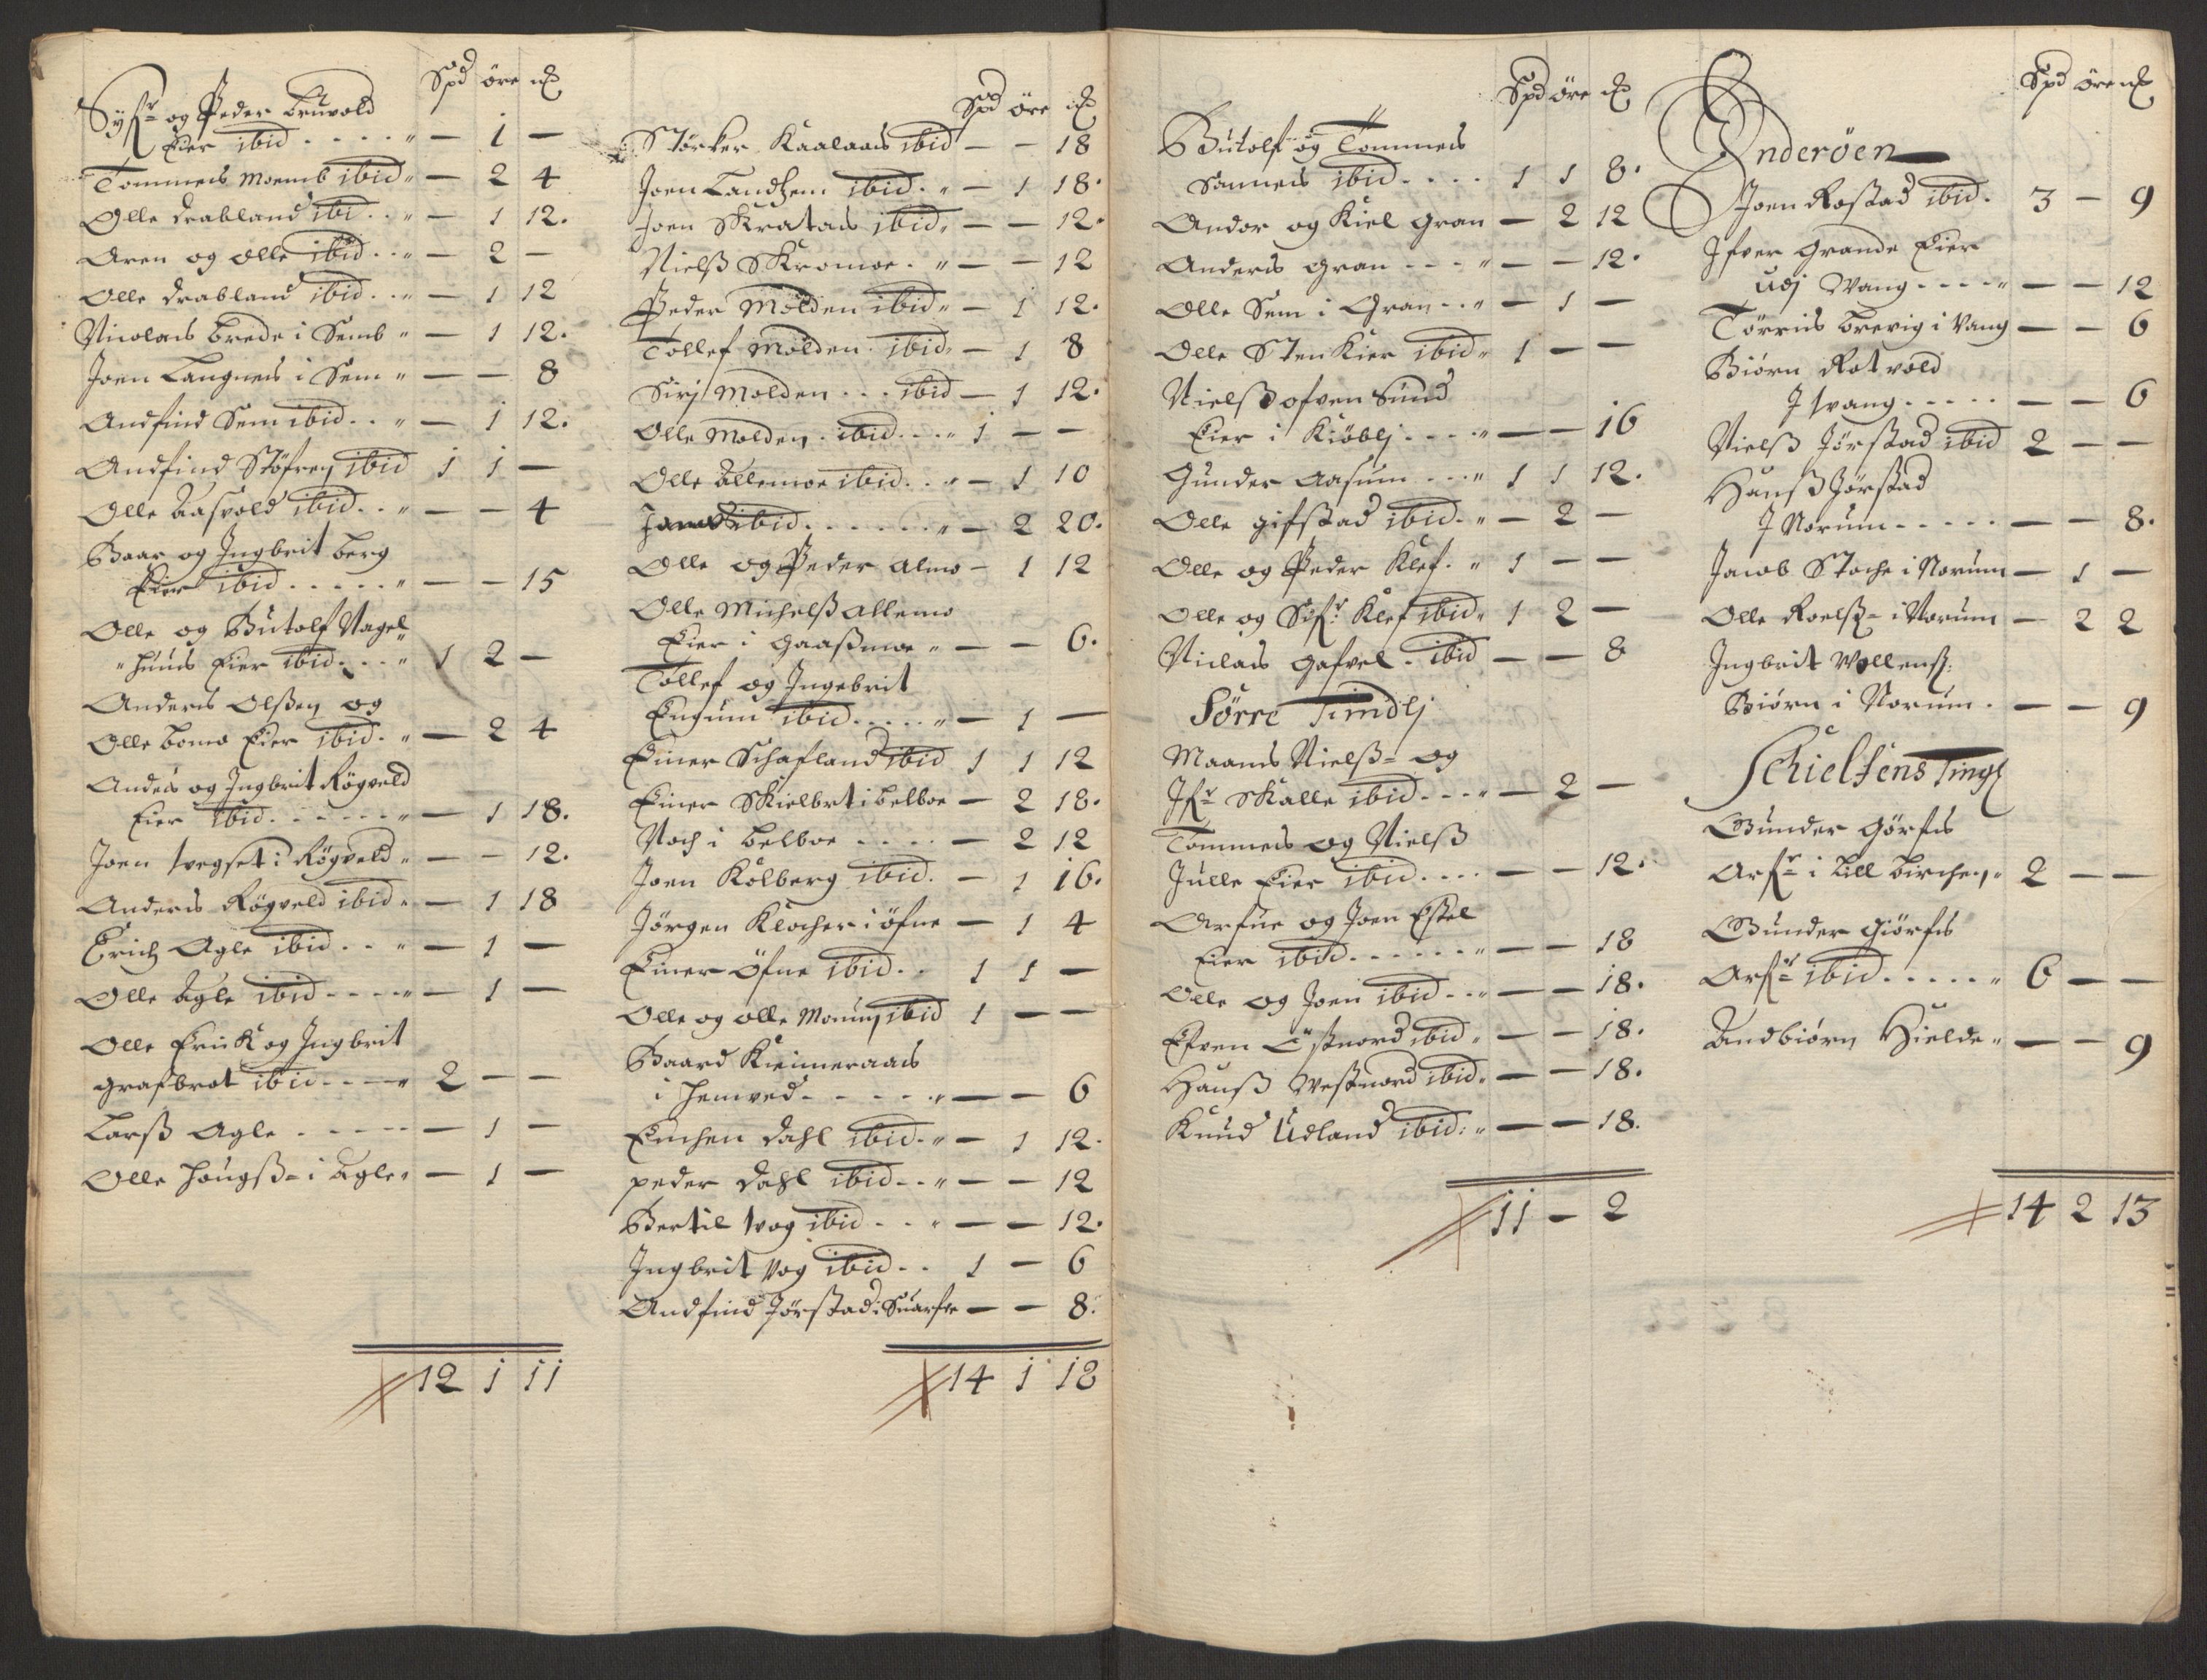 Spd øre
Syfr og Peder Bruvold
Eier ibid - 1 -
Tommes Moemb ibid - 2 4
Olle Drabland ibi - 1 12.
Aren og olle ibid - 2 -
Olle Drabland ibid - 1 12
Nicolaus Brede i Semb - 1 12.
Joen Langnes i Sem - - 8
Andfind Sem ibid - 1 12.
Andfind Støfren ibid 1 1 -
Olle Aasvold ibid - - 4
Baar og Ingbrit berg
Eier ibid - - 15
Olle og Butolf Nagel
huus Eier ibid 1 2 -
Anders Olsen og
Olle bomo Eier ibid - 2 4
Anders og Ingbrit Røgveld
Eier ibid - 1 18.
Joen tvegset i Røgveld - - 12.
Anders Røgveld ibid - 1 18
Erich Agle ibid - 1 -
Olle Agle ibid - 1 -
Olle Erick og Ingbrit
grafbrot ibid 2 - -
Larß Agle - 1 -
Olle Haugß= i Agle - 1 -
12 1 11
Spd øre
Størker Kaalaas ibid - - 18
Joen Landhem ibid - 1 18.
Joen Skratas ibid - - 12.
Nielß Skromoe - - 12
Peder Molden ibid - 1 12.
Tollef Molden ibid - 1 8
Sirj Molden ibid - 1 12.
Olle Molden ibid 1 - -
Olle Allemoe ibid - 1 10
ibid - 2 20.
Olle og Peder Almo - 1 12
Olle Michelß Allemo
Eier i Gaaßmoe - - 6.
Tollef og Ingebrit
Engum ibid - 1 -
Einer Schafland ibid 1 1 12
Einer Skielbrt i belboe - 2 18.
Noch i belboe - 2 12
Joen Kolberg ibid - 1 16.
Jørgen Klocher i øfne - 1 4
Einer Øfne ibid 1 1 -
Olle og olle Moum ibid 1 - -
Baard Kieimeraas
i hemved - - 6
Enchen Dahl ibid - 1 12.
peder Dahl ibid - - 12
Bertil Vog ibid - - 12.
Ingbrit Vog ibid 1 - 6
Andfind Jørstad i Snarfve - - 8.
14 1 18
Spd øre
Butolf og Tommes
Sannes ibid 1 1 8.
Andor og Kiel Gran - 2 12
Anders Gran - - 12.
Olle Sem i Gran - 1 -
Olle Sten Kier ibid 1 - -
Nielß ofven Sund
Eier i Kiøblj - - 16
Gunder Aasum 1 1 12.
Olle gifstad ibid - 2 -
Olle og Peder Klef 1 - -
Olle og Sifr Klef ibid 1 2 -
Niclas gafvel ibid - - 8
Sørre Timdlj
Maans Nielß= og
Ifr Skalle ibid - 2 -
Tommes og Nielß
Julle Eier ibid - - 12.
Arfue og Joen Estel
Eier ibid - - 18
Olle og Joen ibid - - 18.
Efven Østnord ibid - - 18.
Hanß Westnord ibid - - 18.
Knud Udland ibid - - 18.
11 - 2
Spd øre
Inderøen
Joen Rostad ibid 3 - 9
Ifver Grande Eier
Udj Wang - - 12
Tørris brevig i Vang - - 6
Biørn Rotvold
I tvang - - 6
Nielß Jørstad ibid 2 - -
Hanß Jørstad
I Norum - - 8.
Jacob Stoche i Norum - 1 -
Olle Roelß= i Norum - 2 2
Ingbrit Wollenß:
Biørn i Norum - - 9
Schielsens Tingl
Gunder Gørfes
Arfr i Lill Birchen 2 - -
Gunder Giørfes
Arfr ibid 6 - -
Andbiørn Hielde - - 9
14 2 13